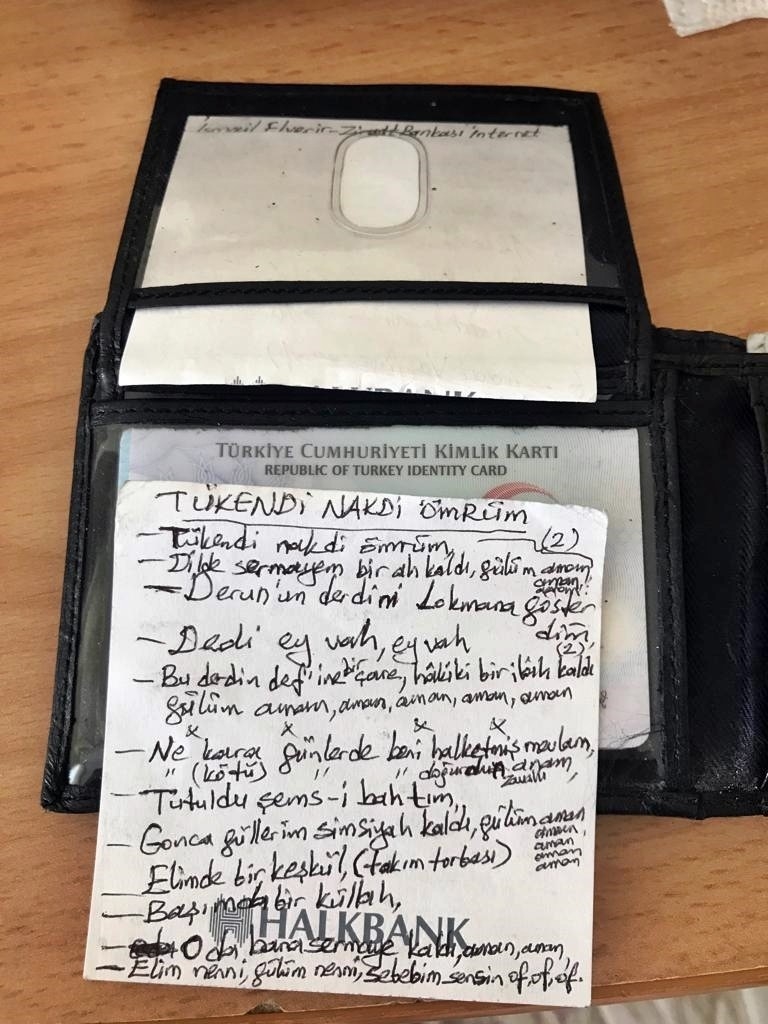 İsmail Elverir-Ziraat Bankası İnternet
HALKBANK
TÜRKİYE CUMHURİYETİ KİMLİK KARTI
REPUBLIC OF TURKEY IDENTITY CARD
TÜKENDİ NAKDİ ÖMRÜM
- Tükendi nakdi ömrüm, (2)
- Dilde sermayem bir ah kaldı, gülüm aman
aman!
- Derun'un derdini Lokmana göster
dim,
- Dedi ey vah, ey vah (2)
- Bu derdin def'ine bir çare, hâkiki bir ilâh kaldı
gülüm aman, aman, aman, aman, aman
x x x x
- Ne kara günlerde beni halketmiş mevlam,
" (kötü) " " doğurdun anam,
zavallı
- Tutuldu şems-i bahtım,
- Gonca güllerim simsiyah kaldı, gülüm aman
aman,
aman
aman
aman
- Elimde bir keşkül, (takım torbası)
- Başımda bir külâh,
HALKBANK
- O da bana sermaye kaldı, aman, aman,
- Elim nenni, gülüm nenni, sebebim sensin of, of, of.